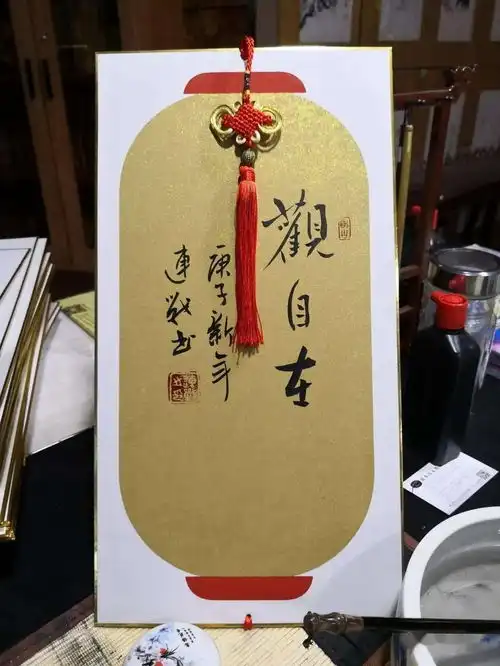 觀自在
庚子新年
連书